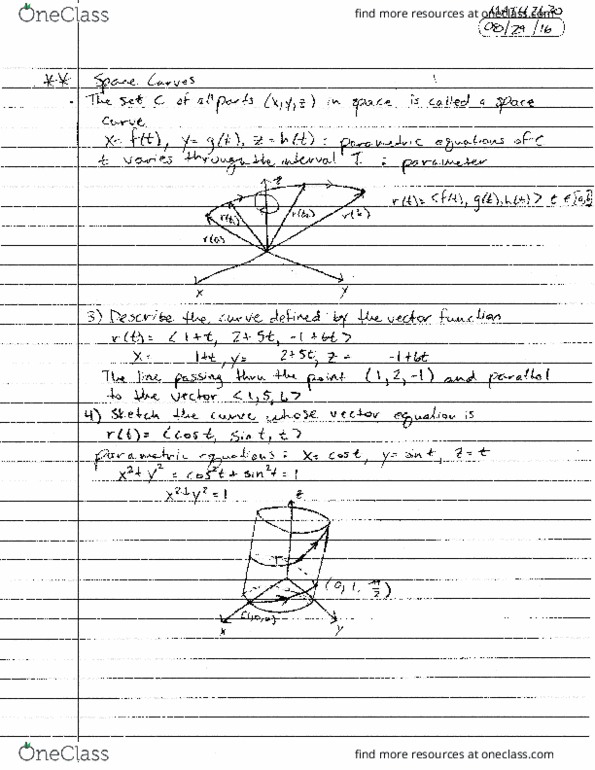 OneClass
find more resources at oneclass.com
08/29/16
** Space Curves
• The set C of all parts (x,y,z) in space is called a space
curve
x = f(t), y = g(t), z = h(t) : parametric equations of C
t varies through the interval I : parameter
z
r(t) = <f(t), g(t), h(t)> t ∈ [a,b]
r(a)
r(t₁)
r(t₂)
r(b)
x
y
3) Describe the curve defined by the vector function
r(t) = <1+t, 2+5t, -1+6t>
x = 1+t, y = 2+5t, z = -1+6t
The line passing thru the point (1, 2, -1) and parallel
to the vector <1, 5, 6>
4) Sketch the curve whose vector equation is
r(t) = <cost, sint, t>
parametric equations : x = cost, y = sint, z = t
x² + y² = cos²t + sin²t = 1
x² + y² = 1
z
(0, 1, π/2)
(1,0,0)
x
y
OneClass
find more resources at oneclass.com